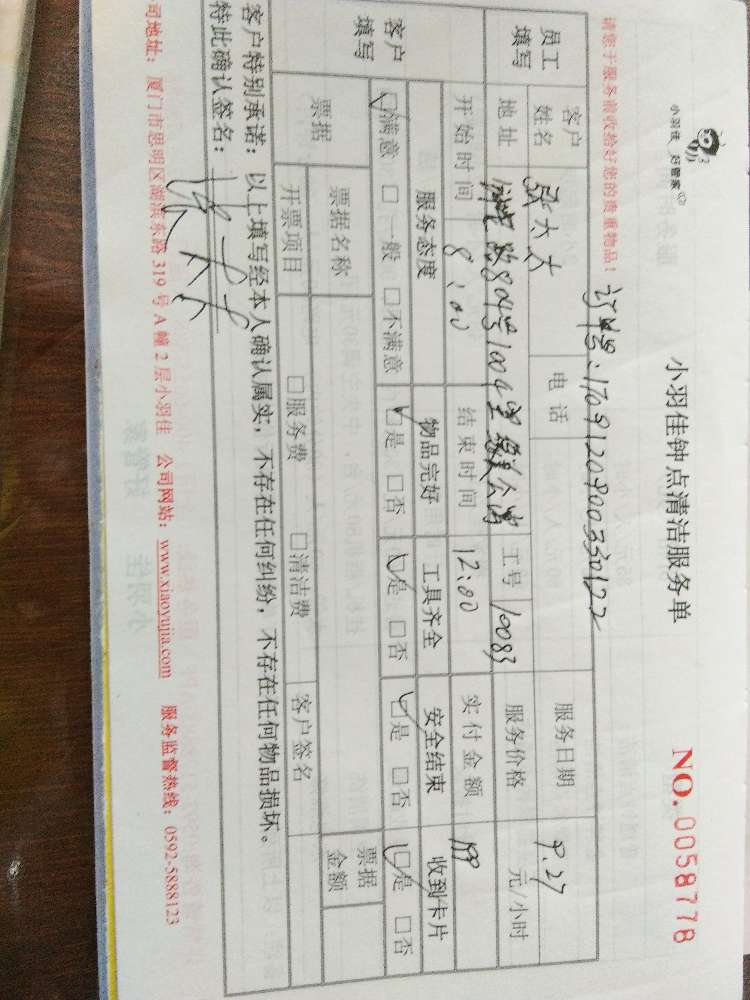 小羽佳 好管家
小羽佳钟点清洁服务单
NO. 0058778
请您于服务前收拾好您的贵重物品！
订单号：1709120900330122
员工填写 客户姓名 张太太 电话 服务日期 9.27
地址 804号1004室 工号 10083 服务价格 元/小时
客户填写 开始时间 8：00 结束时间 12：00 实付金额
服务态度 物品完好 工具齐全 安全结束 收到卡片
☑满意 □一般 □不满意 ☑是 □否 ☑是 □否 ☑是 □否 ☑是 □否
票据 票据名称 票据金额
开票项目 □服务费 □清洁费 客户签名
客户特别承诺：以上填写经本人确认属实，不存在任何纠纷，不存在任何物品损坏。
特此确认签名：张太太
司地址：厦门市思明区湖滨东路 319 号 A 幢 2 层小羽佳 公司网站：www.xiaoyujia.com 服务监督热线：0592-5888123